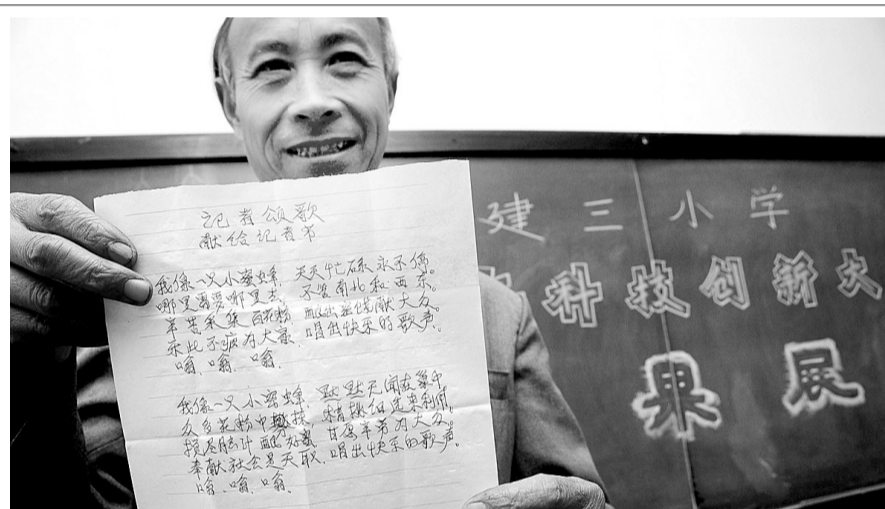 记者颂歌
献给记者节
我像一只小蜜蜂，天天忙碌永不停。
哪里需要哪里去，不管南北和西东。
辛苦采集百花粉，酿出蜜献大众。
乐此不疲为大家，唱出快乐的歌声。
嗡、嗡、嗡、
我像一只小蜜蜂，默默无闻在巢中
众多花粉中，精挑细选来利用。
酿好蜜，甘愿辛劳为大众。
奉献社会是天职，唱出快乐的歌声。
嗡、嗡、嗡、
建三小学
科技创新大
果展